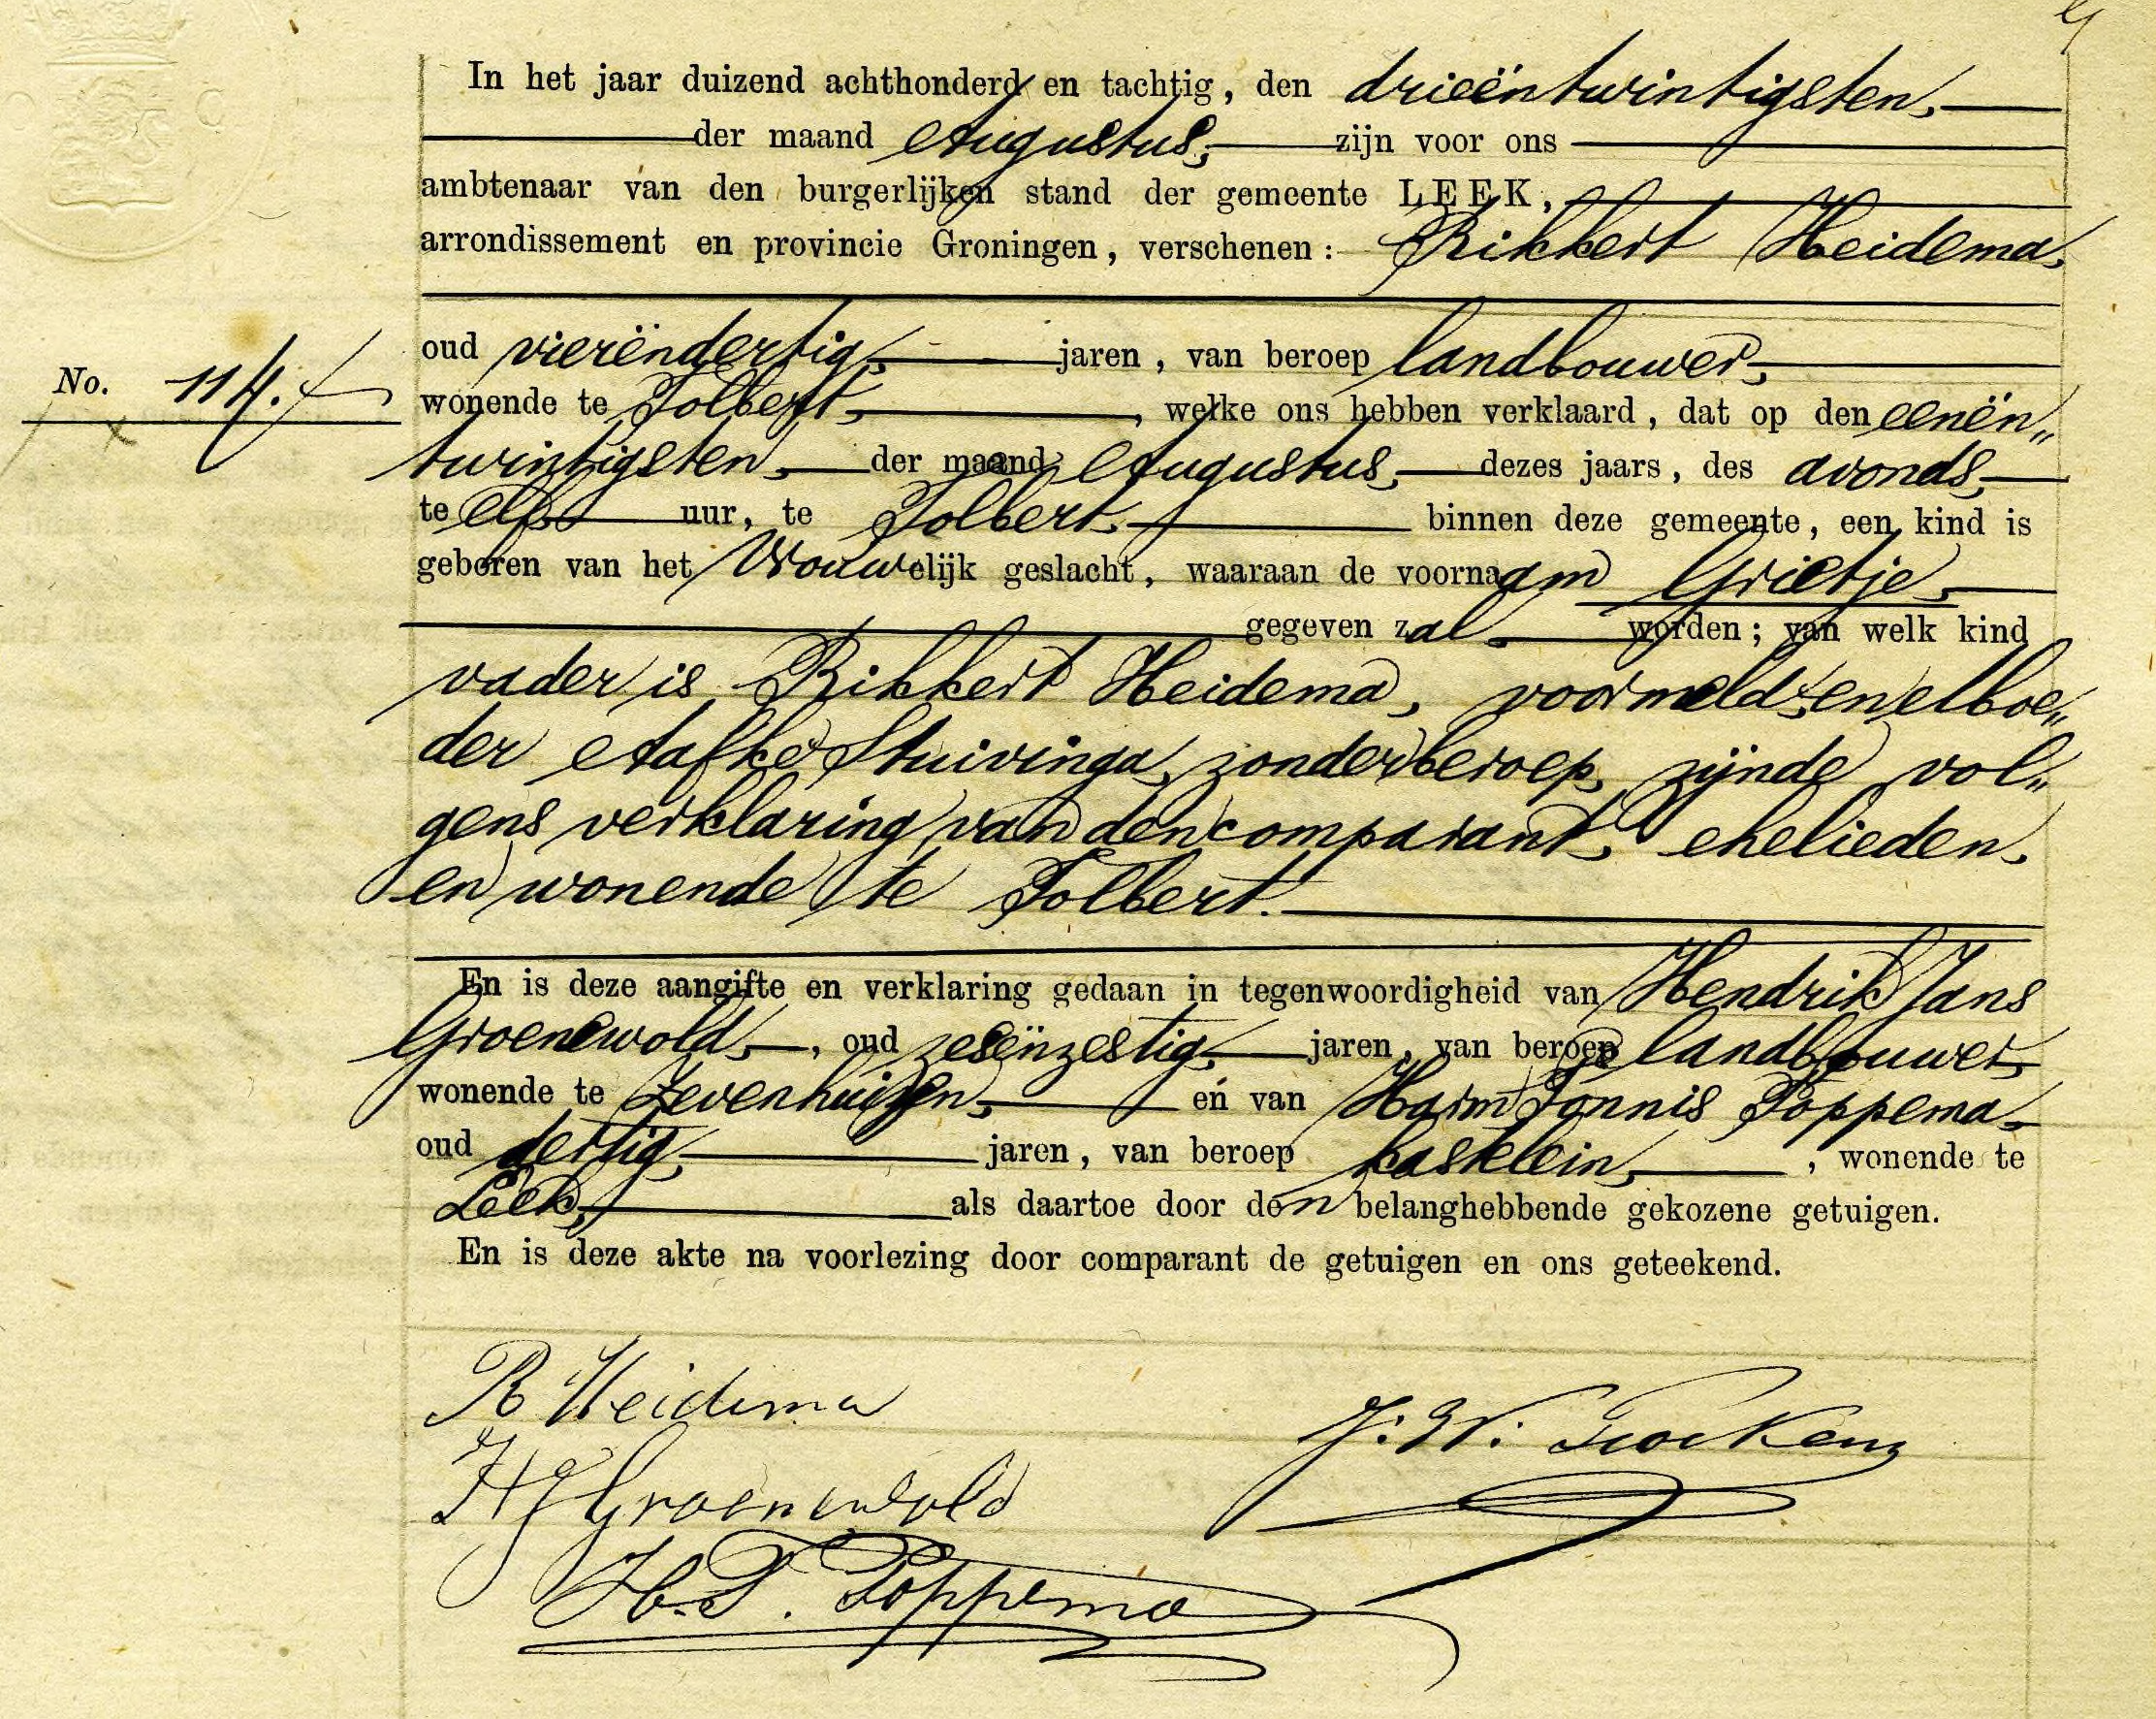 In het jaar duizend achthonderd en tachtig, den drieëntwintigsten,
der maand Augustus, zijn voor ons
ambtenaar van den burgerlijken stand der gemeente LEEK,
arrondissement en provincie Groningen, verschenen: Rikkert Heidema,
oud vierendertig, jaren, van beroep landbouwer,
No. 114.
wonende te Tolbert, , welke ons hebben verklaard, dat op den eenën„
twintigsten, der maand Augustus, dezes jaars, des avonds,
te elf uur, te Tolbert, binnen deze gemeente, een kind is
geboren van het Vrouwelijk geslacht, waaraan de voornaam Grietje,
gegeven zal worden; van welk kind
vader is Rikkert Heidema, voormeld, en Moe„
der Aafke Stuivinga, zonder beroep, zijnde vol„
gens verklaring van den comparant, ehelieden,
en wonende te Tolbert.
En is deze aangifte en verklaring gedaan in tegenwoordigheid van Hendrik Jans
Groenewold, , oud zesënzestig, jaren, van beroep landbouwer,
wonende te Zevenhuizen, en van Harm Tonnis Poppema,
oud dertig, jaren, van beroep kastelein, , wonende te
Leek, als daartoe door den belanghebbende gekozene getuigen.
En is deze akte na voorlezing door comparant de getuigen en ons geteekend.
R Heidema
HJ Groenewold
H. T. Poppema